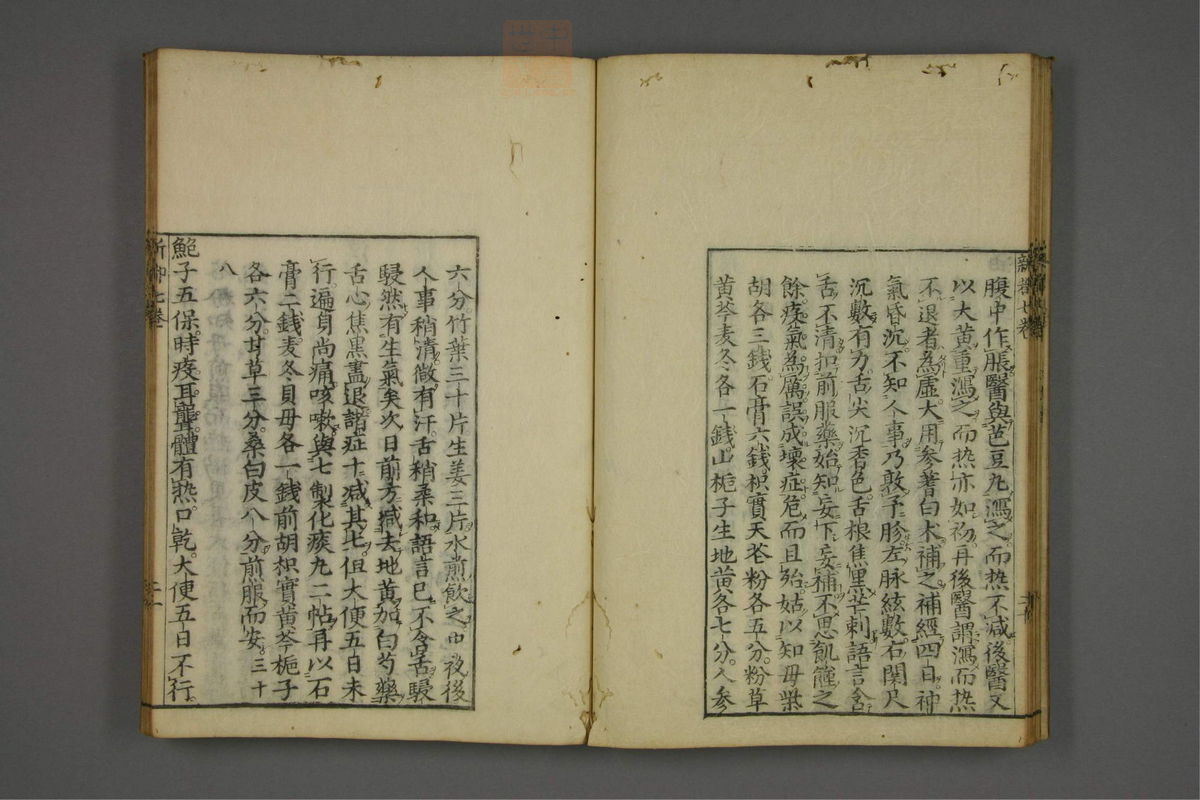 腹中作脹醫與芭豆丸瀉之而热不减後醫又
以大黄重瀉之而热亦如初再後醫謂瀉而热
不退者為虛大用參蓍白术補之補經四日神
氣昏沉不知人事乃敦予胗左脉絃數右関尺
沉數有力舌尖沉香色舌根焦黒芒刺語言含
舌不清扣前服藥始知妄下妄補不思飢饉之
餘疫氣為厲誤成壞症危而且殆姑以知母柴
胡各三錢石膏六錢枳實天花粉各五分粉草
黄芩麦冬各一錢山梔子生地黄各七分人参
六分竹葉三十片生姜三片水煎飲之中夜後
人事稍清微有汗舌稍柔和語言已不含舌駸
駸然有生氣矣次日前方减去地黄加白芍藥
舌心焦黒盡退諸症十减其七但大便五日未
行遍身尚痛咳嗽與七製化痰丸二帖再以石
膏二錢麦冬貝母各一錢前胡枳實黄芩梔子
各六分甘草三分桑白皮八分煎服而安三十
八
鮑子五保時疫耳聾體有热口乾大便五日不行